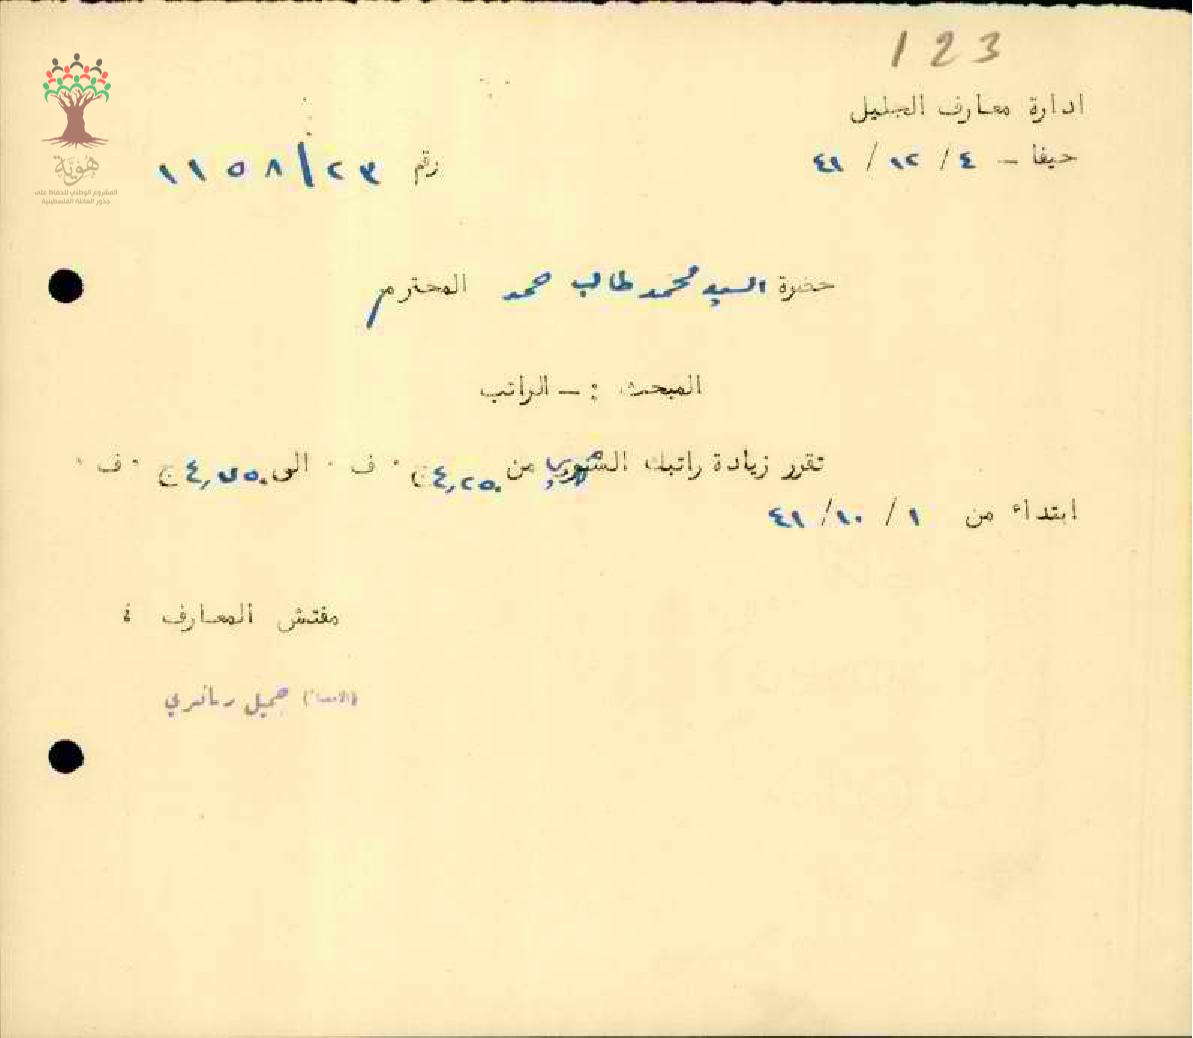 123
ادارة معارف الجليل
حيفا - ٤ / ١٢ / ٤١
رقم ١١٥٨/٢٣
هُوِيَّة
المشروع الوطني للحفاظ على
جذور العائلة الفلسطينية
حضرة السيد محمد طالب حمد المحترم
المبحث :- الراتب
تقرر زيادة راتبك الشهري من ٤,٢٥٠ ج٠ ف ٠ الى ٤,٧٥٠ ج ٠ ف ٠
ابتداء من ١ / ١٠/ ٤١
مفتش المعارف ؛
(الامضاء) جميل